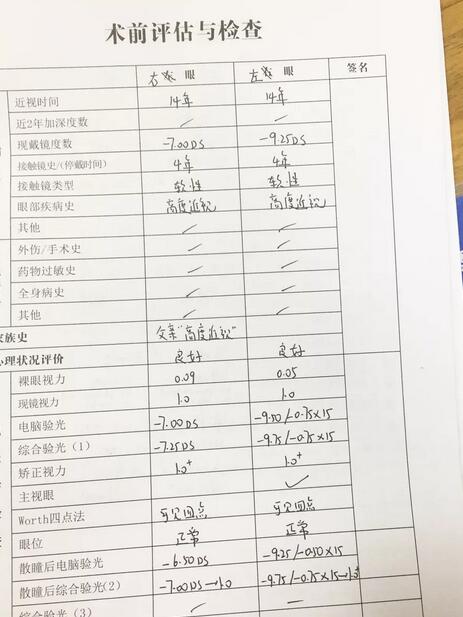 术前评估与检查
右 眼 左 眼 签名
近视时间 14年 14年
近2年加深度数 / /
现戴镜度数 -7.00DS -9.25DS
接触镜史/(停戴时间) 4年 4年
接触镜类型 软性 软性
眼部疾病史 高度近视 高度近视
其他 / /
外伤/手术史 / /
药物过敏史 / /
全身病史 / /
其他 / /
家族史 父亲"高度近视"
心理状况评价 良好 良好
裸眼视力 0.09 0.05
现镜视力 1.0 1.0
电脑验光 -7.00DS -9.50/-0.75×15
综合验光(1) -7.25DS -9.75/-0.75×15
矫正视力 1.0+ 1.0+
主视眼 ✓
Worth四点法 可见四点 可见四点
眼位 正常 正常
散瞳后电脑验光 -6.50DS -9.25/-0.50×15
散瞳后综合验光(2) -7.00DS→1.0 -9.75/-0.75×15→1.0
综合验光(3) / /